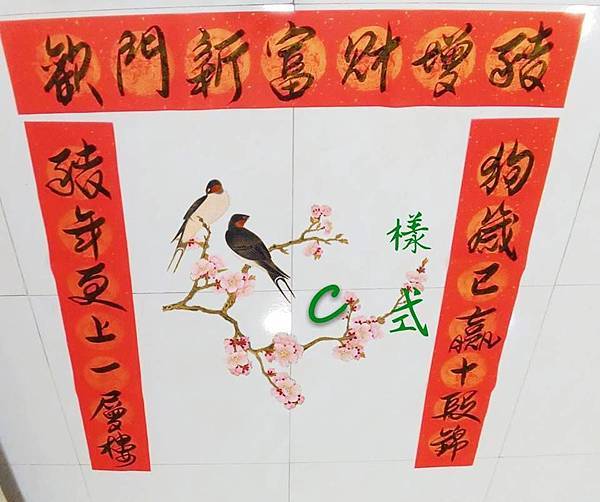 豬增財富新門歡
狗歲已贏十段錦
豬年更上一層樓
樣式
C